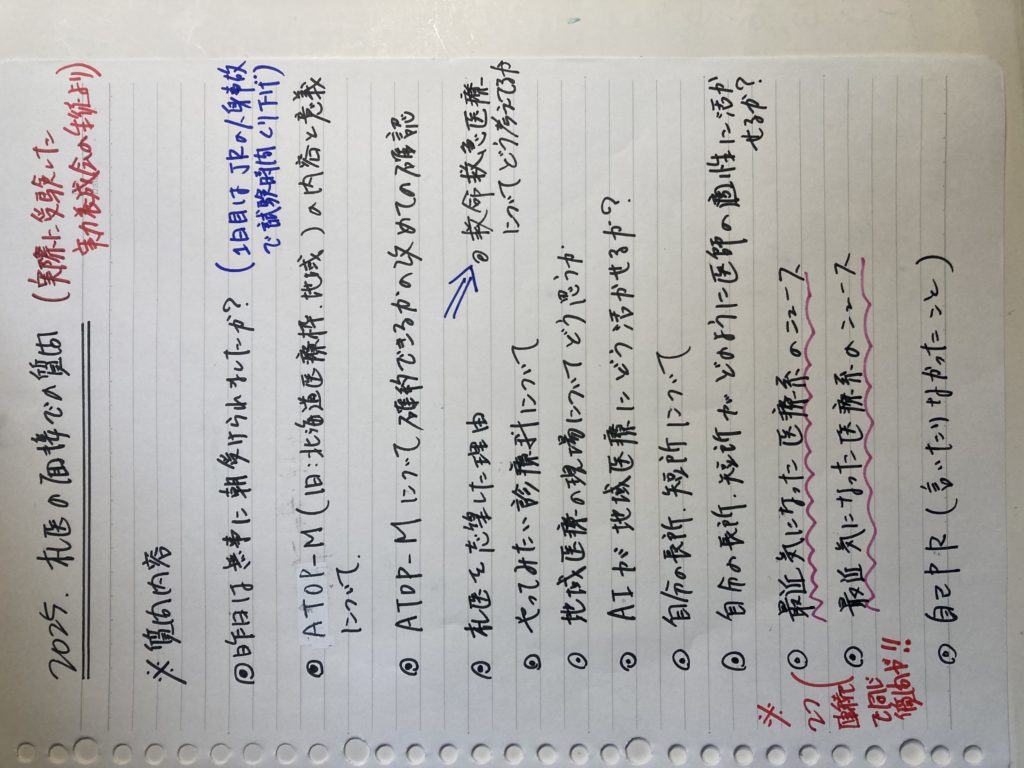 2025. 札医の面接での質問 (実際に受験した
実力養成会の生徒より)
※質問内容
◎昨日は無事に朝受けられましたか? (1日目はJRの人身事故
で試験時間くり下げ)
◎ATOP-M(旧:北海道医療枠、地域)の内容と意義
について
◎ATOP-Mについて、確約できるかの改めての確認
◎札医を志望した理由
◎救命救急医療
についてどう考えてるか
◎やってみたい診療科について
◎地域医療の現場についてどう思うか
◎AIが地域医療にどう活かせるか?
◎自分の長所、短所について
◎自分の長所、短所がどのように医師の適性に活か
せるか?
◎最近気になった医療系のニュース
◎最近気になった医療系のニュース
※
2つ
連続
で同じ
質問が!!
◎自己PR(言いたりなかったこと)